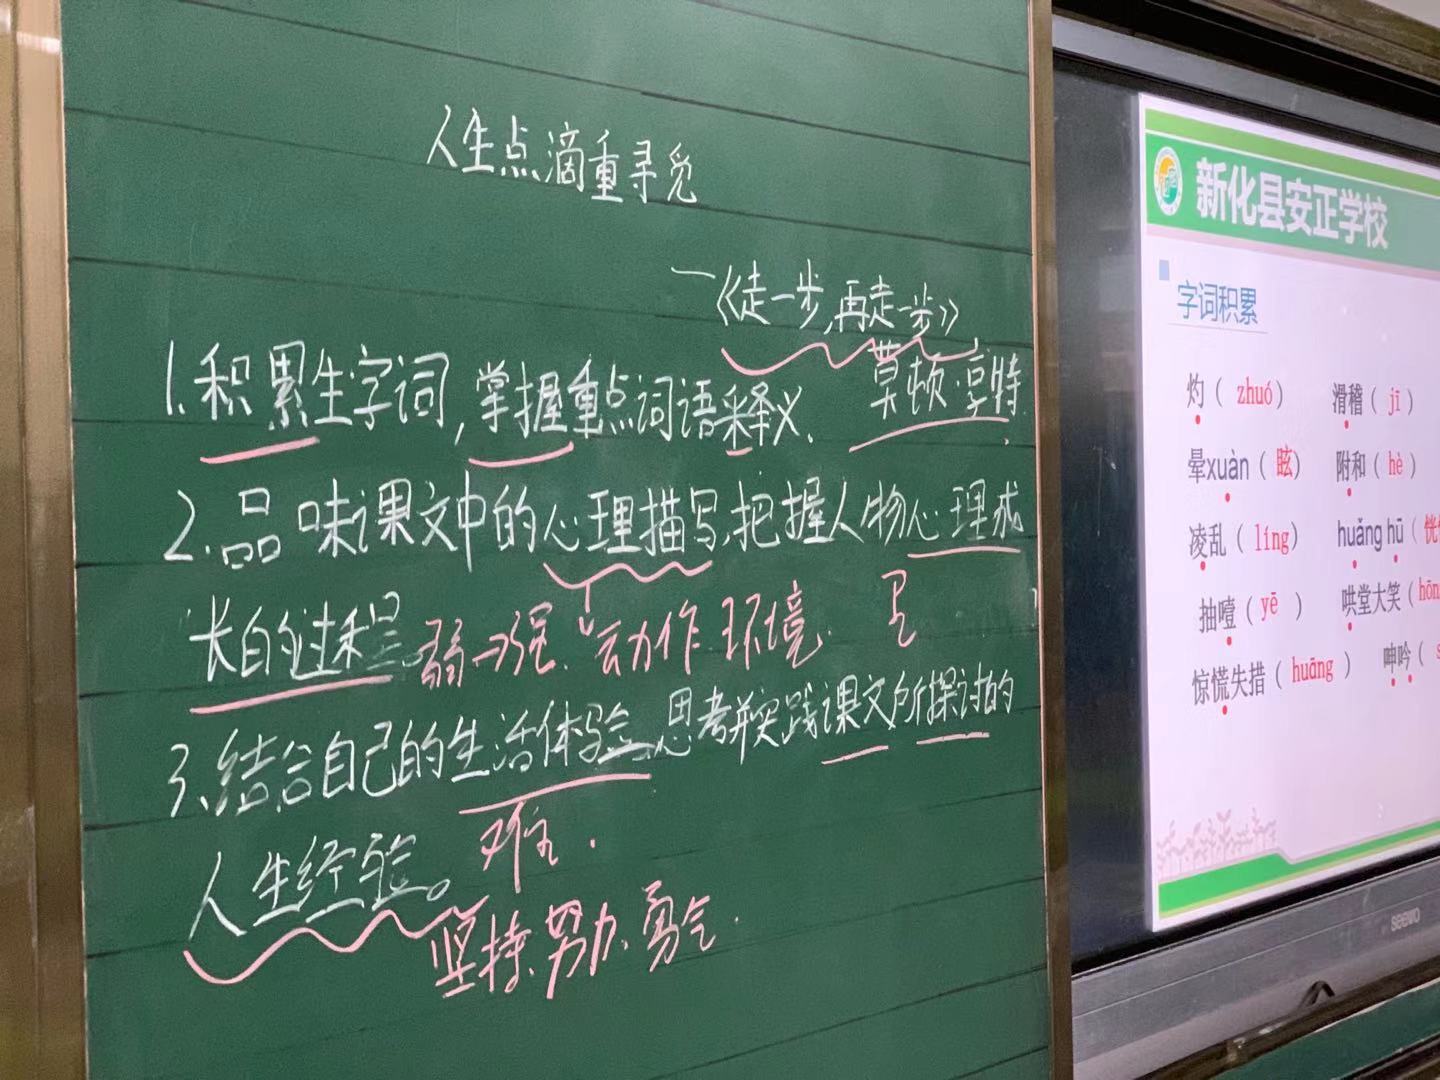 人生点滴重寻觅
—《走一步,再走一步》
莫顿·亨特
1.积累生字词,掌握重点词语释义、
2.品味课文中的心理描写,把握人物心理成
长的过程。弱→强. 动作 环境.
3、结合自己的生活体验,思考并实践课文所探讨的
难.
人生经验。
坚持、努力、勇气.
新化县安正学校
字词积累
灼( zhuó) 滑稽( jī )
晕xuàn( 眩) 附和( hè )
凌乱( líng) huǎng hū(
抽噎( yē ) 哄堂大笑(
惊慌失措( huāng ) 呻吟(
seewo